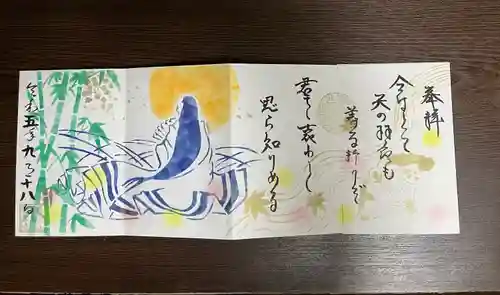 奉拝
今はとて
天の羽衣
着る折りぞ
君を哀れと
思ひ知りぬる
令和五年九月十八日